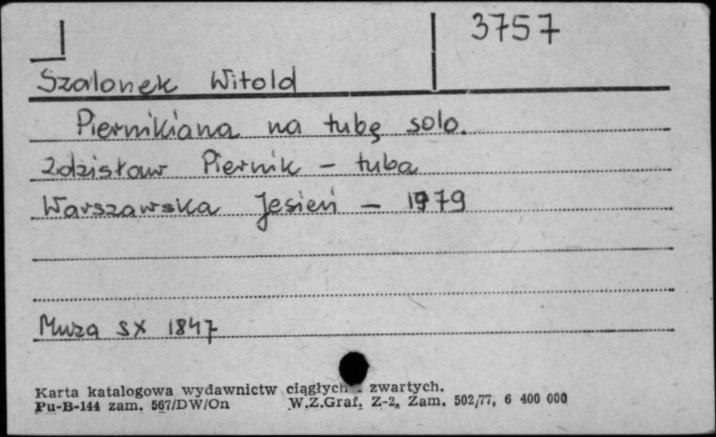 3757
Szalonek Witold
Piernikiana na tubę solo.
Zdzisław Piernik – tuba
Warszawska Jesień – 1979
Muza SX 1847
Karta katalogowa wydawnictw ciągłych i zwartych.
Pu-B-144 zam. 567/DW/On W.Z.Graf. Z-2, Zam. 502/77, 6 400 000